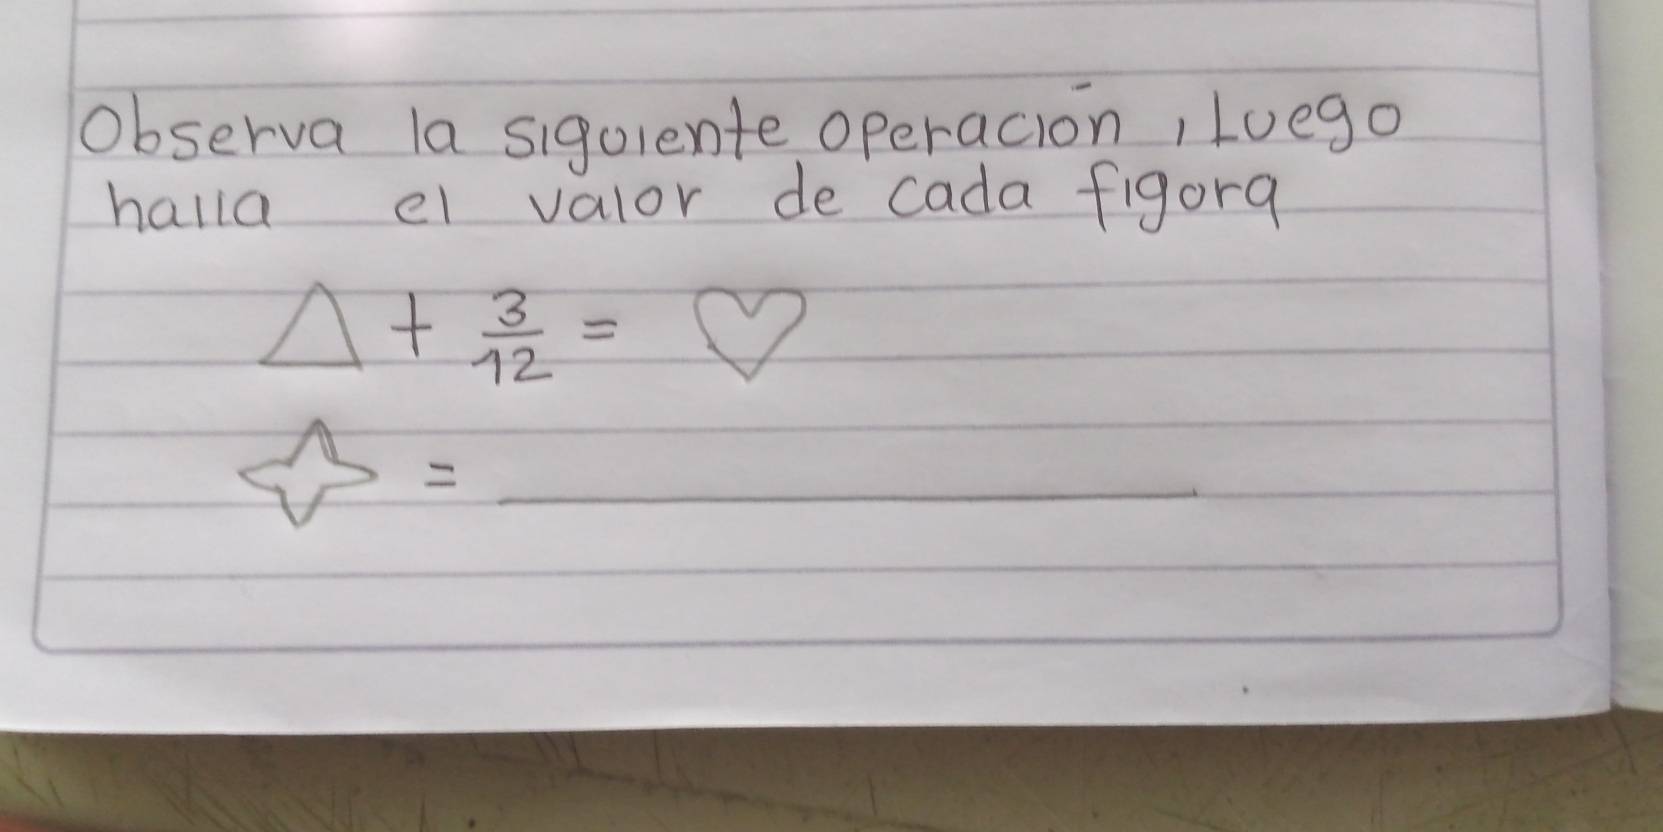 Observa la siguiente operación, Luego
halla el valor de cada figura
△ + 3/12 = ♡
✧ = ____________